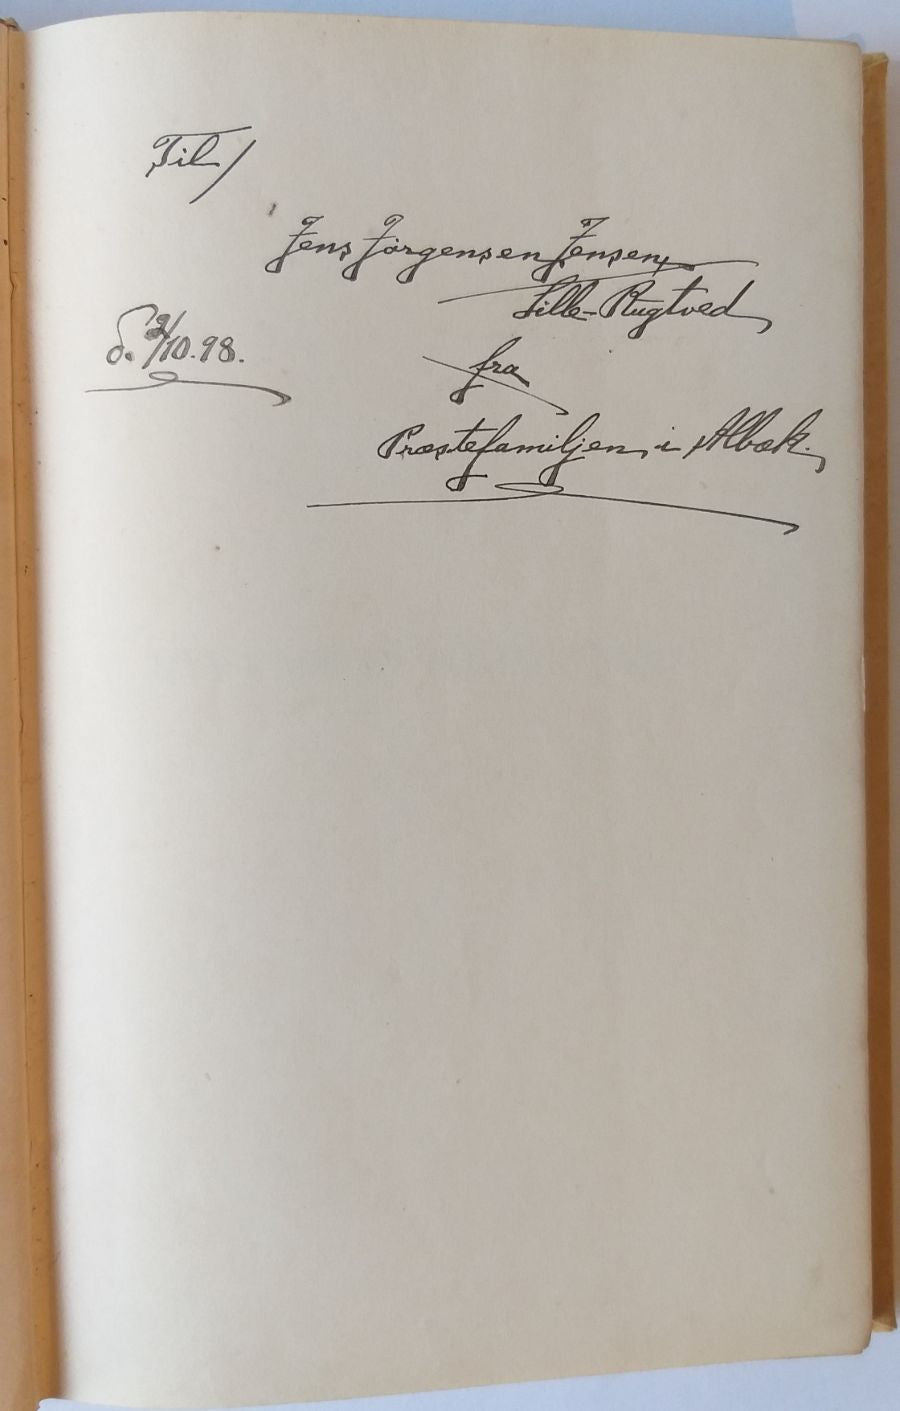 Til/
Jens Jörgensen Jensen,
Lille-Rugtved
d. 2/10.98.
fra
Præstefamiljen i Albæk.